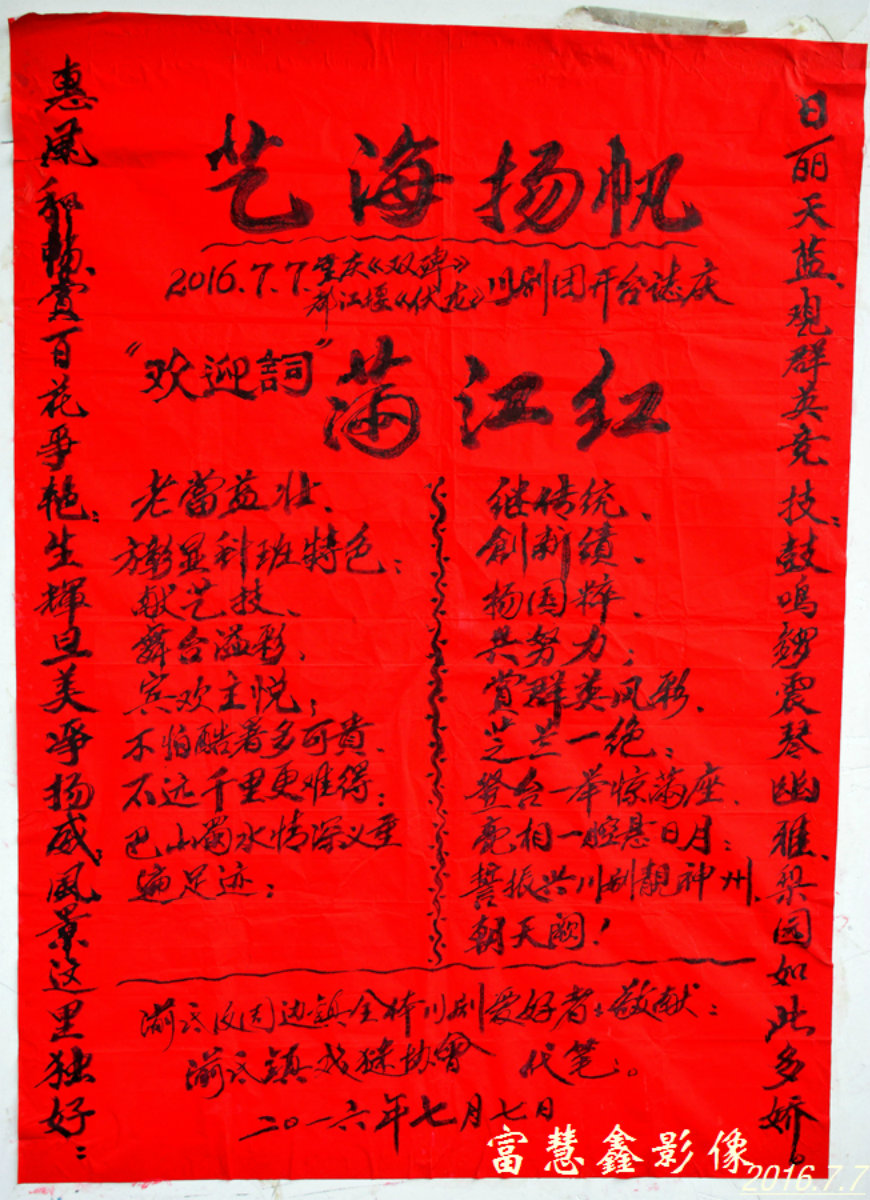 艺海扬帆
2016.7.7.重庆《双碑》
都江堰《伏龙》川剧团开台誌庆
"欢迎詞"
满江红
老當益壮、
澎显科班特色;
献艺技、
舞台溢彩,
宾欢主悦;
不怕酷暑多可貴、
不远千里更难得;
巴山蜀水情深义重
遍足迹;
继传统、
創新绩、
扬国粹、
共努力;
赏群英风彩、
芝兰一绝;
登台一举惊满座、
亮相一腔悬日月;
誓振兴川剧靓神州
朝天阙!
日丽天蓝、观群英竞技;鼓鳴锣震琴幽雅、梨园如此多娇。
惠风和暢、赏百花争艳;生輝旦美净扬威、風景这里独好;
及周边镇全体川剧爱好者:敬献:
镇戏迷协會 代笔。
二〇一六年七月七日
富慧鑫影像
2016.7.7